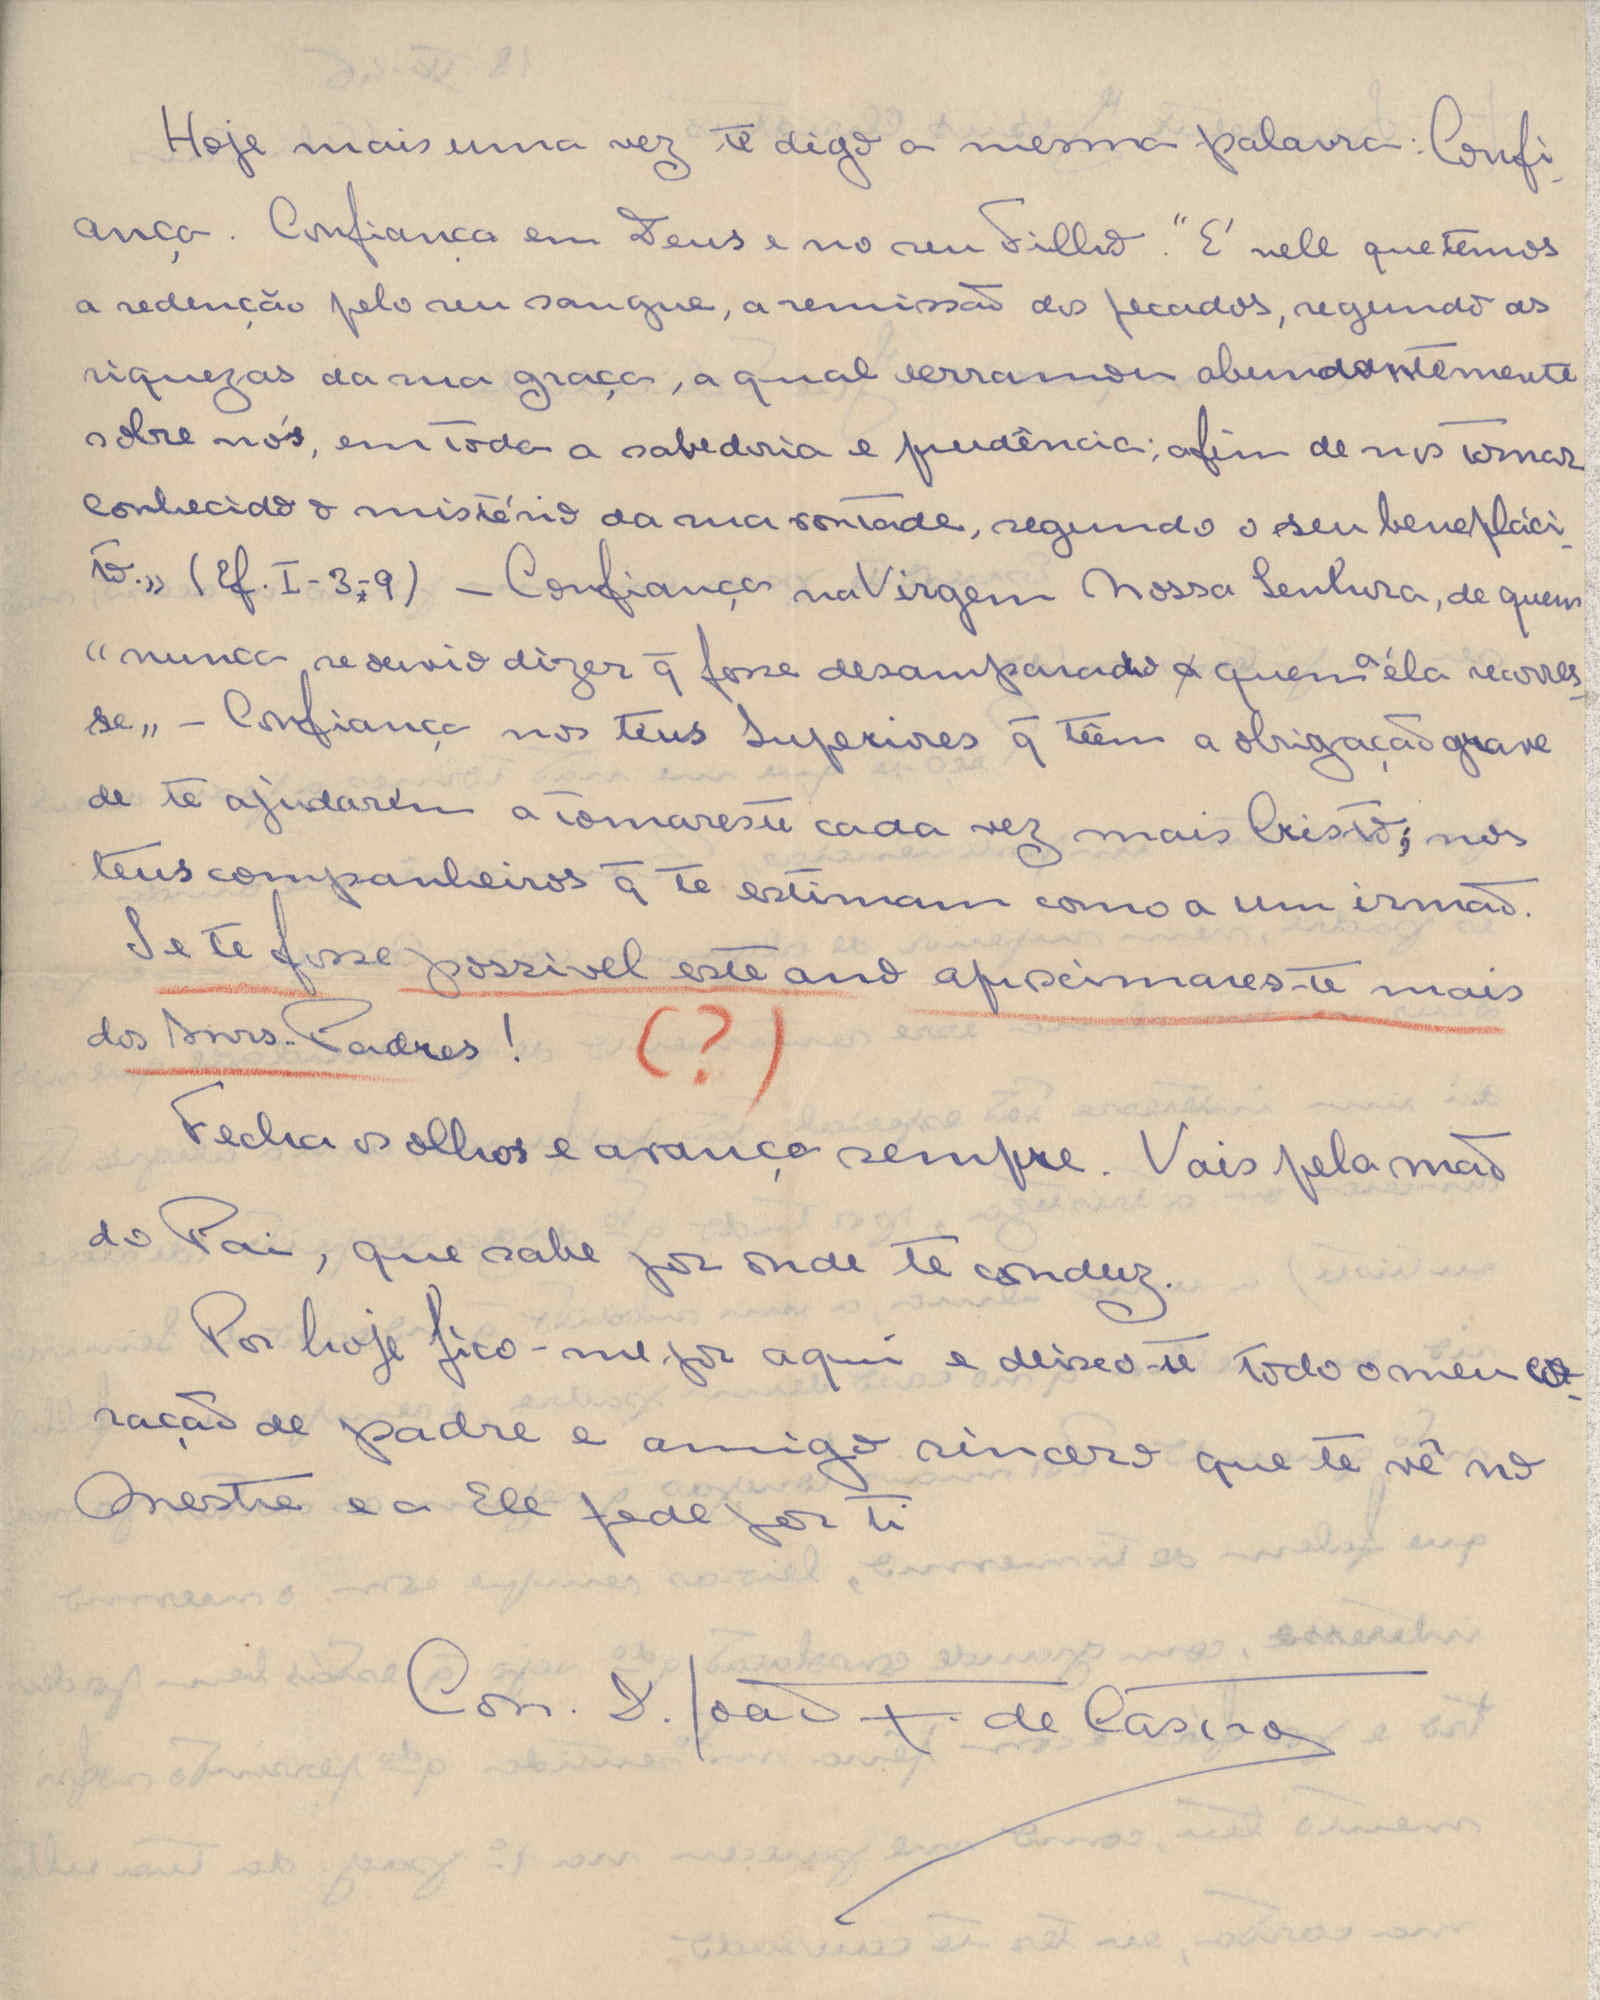 Hoje mais uma vez te digo a mesma palavra: Confi-
ança. Confiança em Deus e no seu Filho. "É nele que temos
a redenção pelo seu sangue, a remissão dos pecados, segundo as
riquezas da sua graça, a qual derramou abundantemente
sobre nós, em toda a sabedoria e prudência; afim de nos tornar
conhecido o mistério da sua vontade, segundo o seu benepláci-
to.» (Ef. I-3;-9) – Confiança na Virgem Nossa Senhora, de quem
"nunca se ouvio dizer q̃ fosse desamparado quem a éla recorres-
se„ – Confiança nos teus Superiores q̃ têm a obrigação grave
de te ajudarem a tornares-te cada vez mais Cristo; nos
teus companheiros q̃ te estimam como a um irmão.
Se te fosse possivel este ano aproximares-te mais
dos Snrs. Padres! (?)
Fecha os olhos e avança sempre. Vais pela mão
do Pai, que sabe por onde te conduz.
Por hoje fico-me por aqui e deixo-te todo o meu co-
ração de padre e amigo sincero que te vê no
Mestre e a Ele pede por ti
Con. D. João de Castro